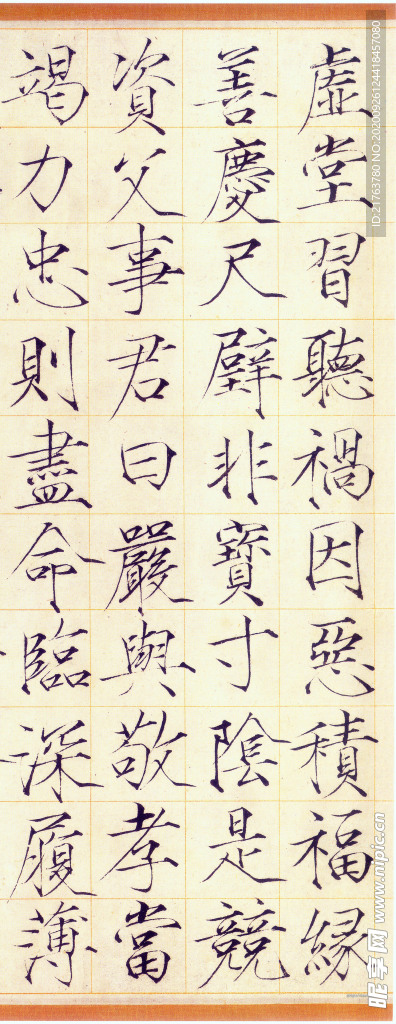 虛堂習聽禍因惡積福緣
善慶尺璧非寶寸陰是競
資父事君曰嚴與敬孝當
竭力忠則盡命臨深履薄
ID:21763780 NO:20200926124418457080
昵享网 www.nipic.cn